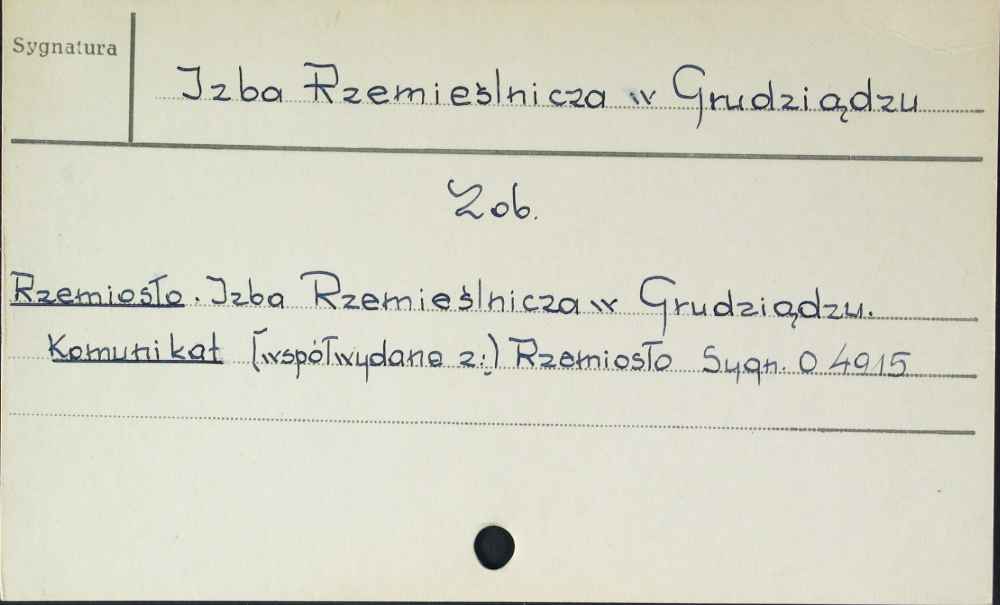 Sygnatura
Izba Rzemieślnicza w Grudziądzu
Zob.
Rzemiosło. Izba Rzemieślnicza w Grudziądzu.
Komunikat (współwydane z:) Rzemiosło Sygn. O 4915